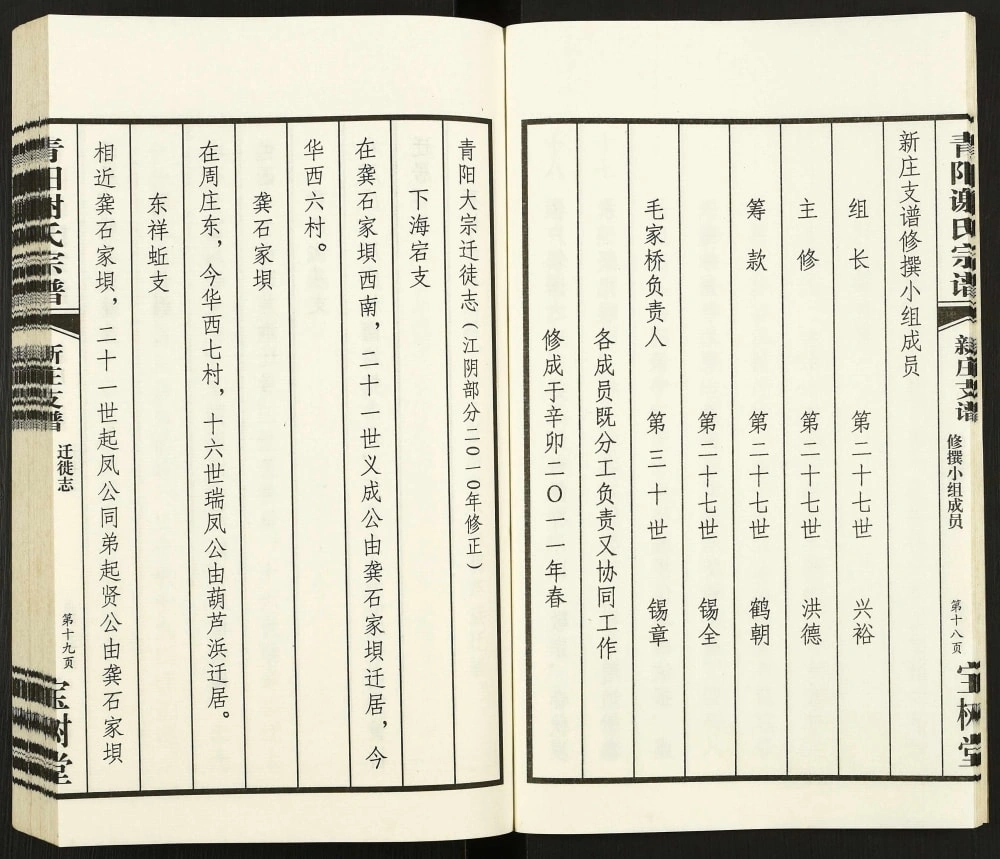 青阳谢氏宗谱
新庄支谱
修撰小组成员
第十八页
宝树堂
新庄支谱修撰小组成员
组长 第二十七世 兴裕
主修 第二十七世 洪德
筹款 第二十七世 鹤朝
第二十七世 锡全
毛家桥负责人 第三十世 锡章
各成员既分工负责又协同工作
修成于辛卯二〇一一年春
青阳大宗迁徒志(江阴部分二〇一〇年修正)
下海宕支
在龚石家垻西南,二十一世义成公由龚石家垻迁居,今
华西六村。
龚石家垻
在周庄东,今华西七村,十六世瑞凤公由葫芦浜迁居。
东祥蚯支
相近龚石家垻,二十一世起凤公同弟起贤公由龚石家垻
青阳谢氏宗谱
新庄支谱
迁徙志
第十九页
宝树堂